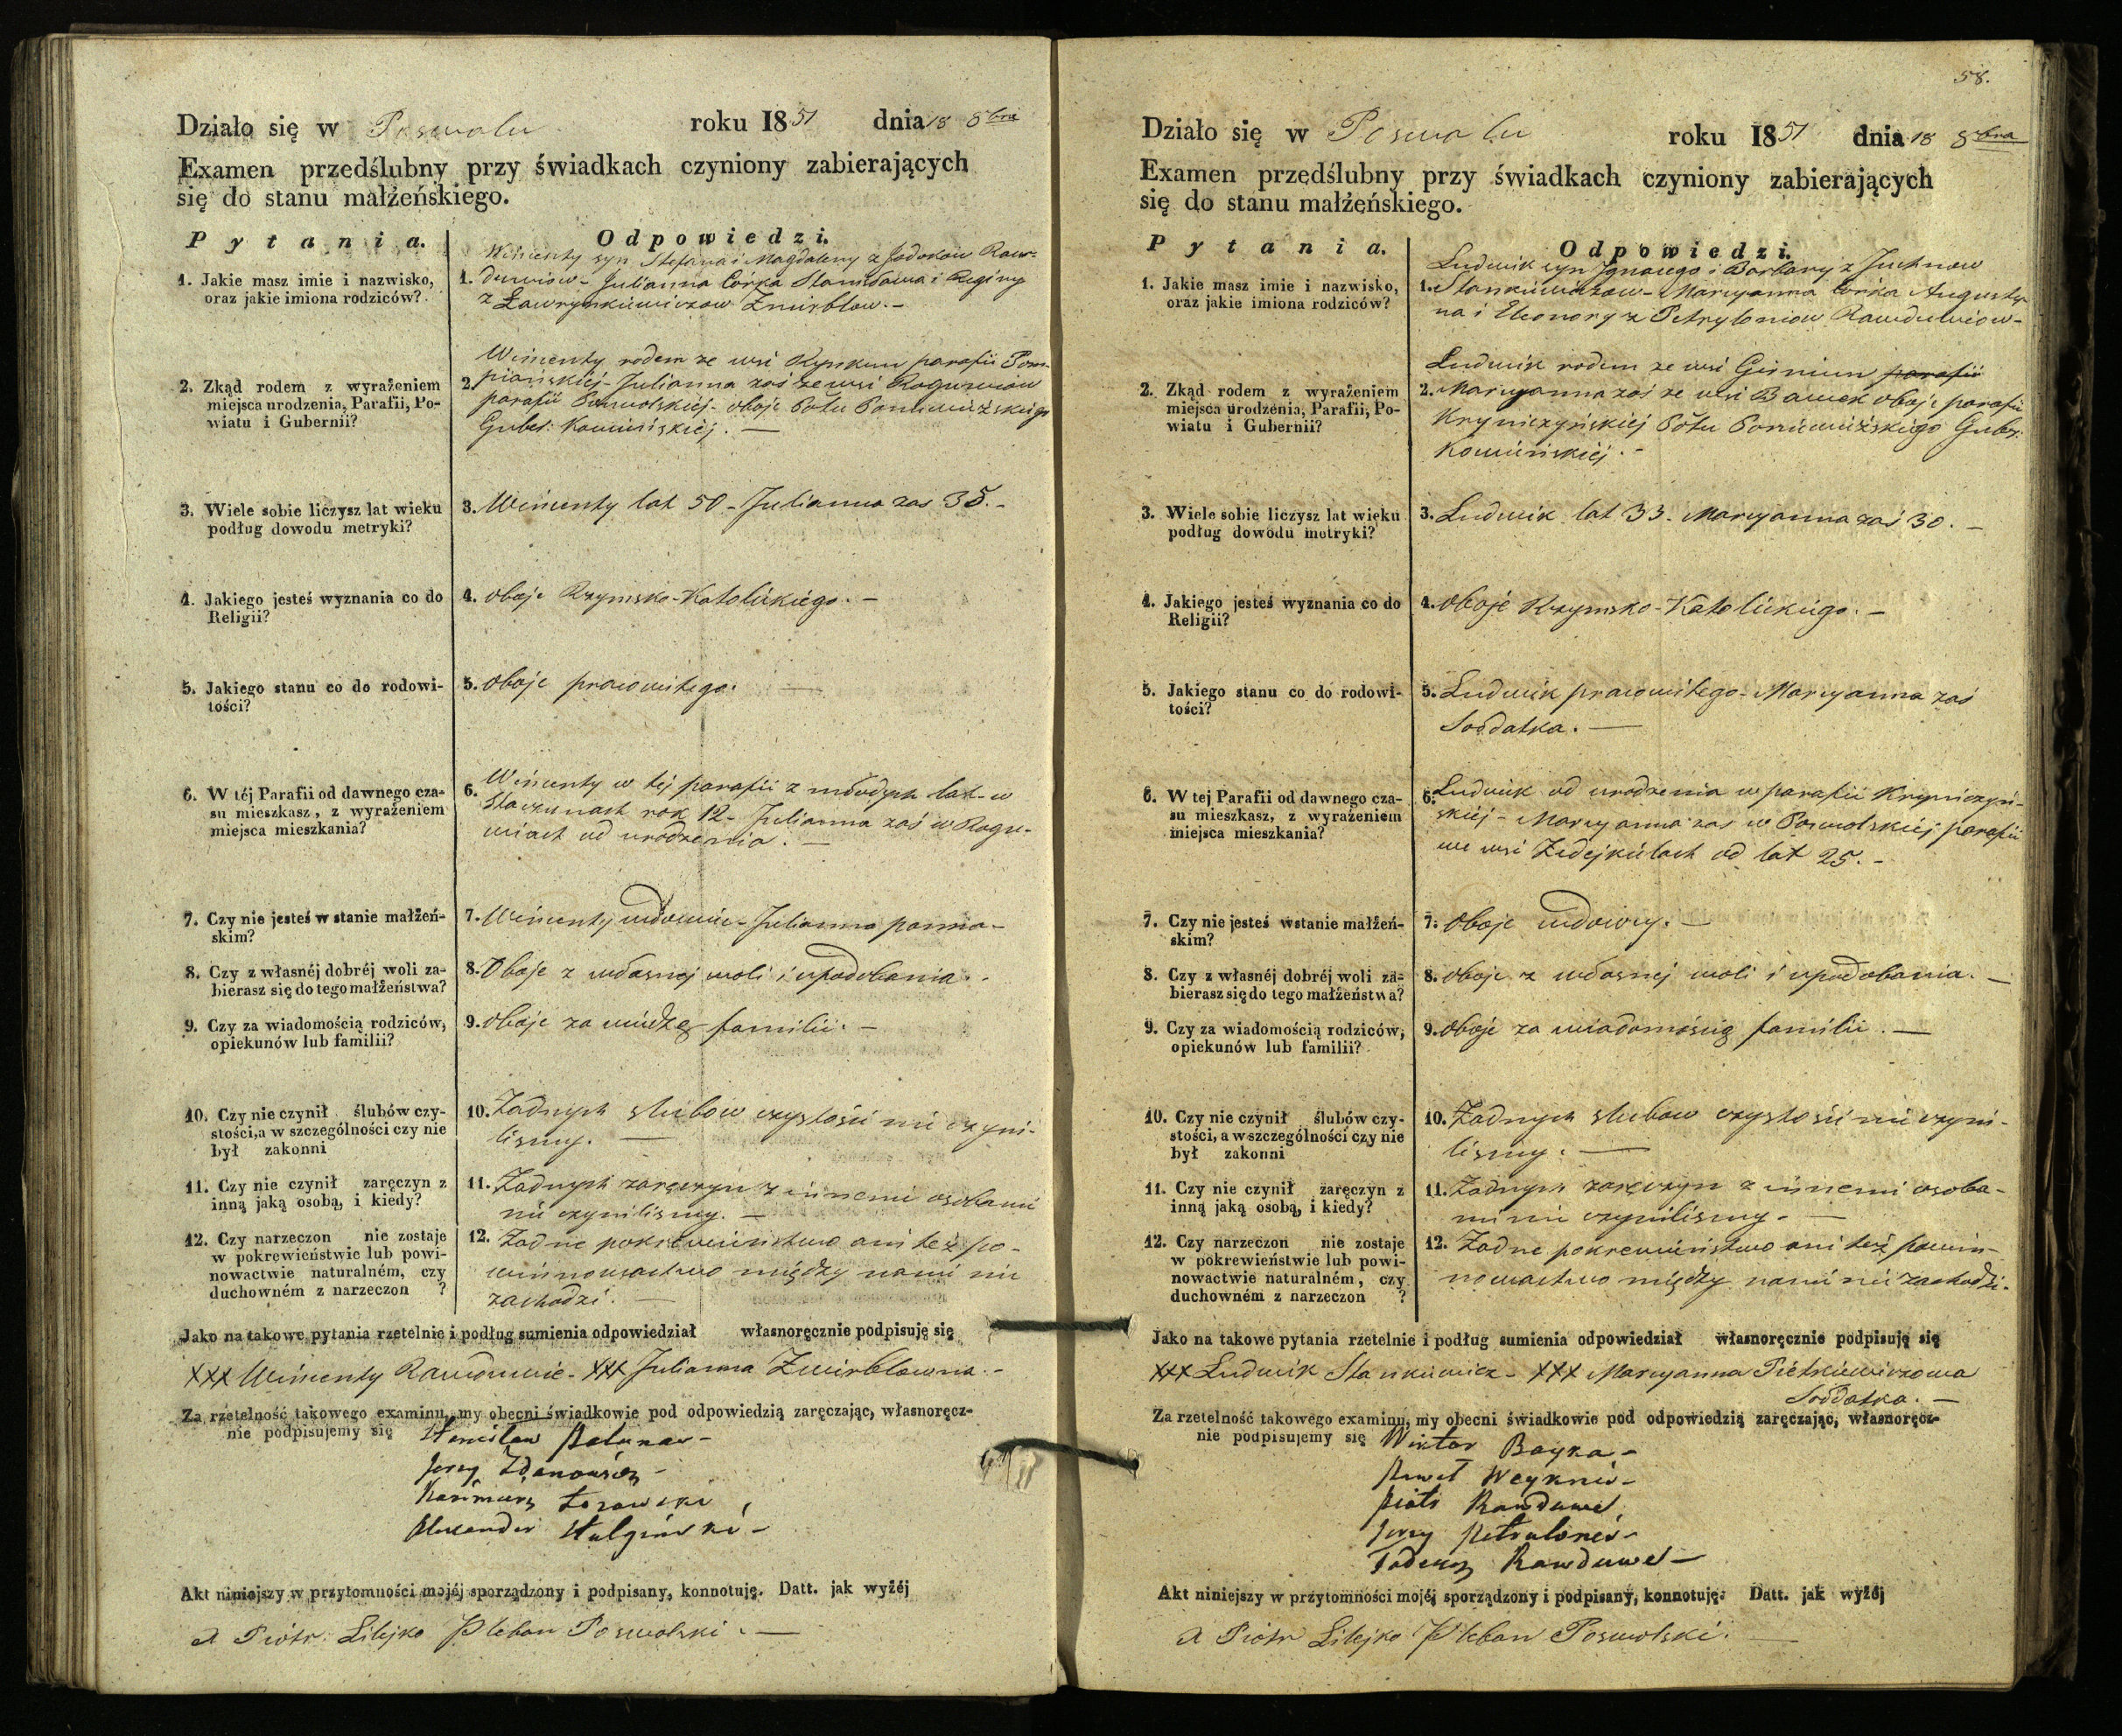 Działo się w Poswolu roku 1851 dnia 18 8bra
Examen przedślubny przy świadkach czyniony zabierających
się do stanu małżeńskiego.
Pytania.
Odpowiedzi.
1. Jakie masz imie i nazwisko,
oraz jakie imiona rodziców?
Wincenty syn Stefana i Magdaleny z Jodokow Raw-
1. duwiow - Julianna Córka Stanisława i Reginy
z Ławrynkiewiczow Zwirblow. -
2. Zkąd rodem z wyrażeniem
miejsca urodzenia, Parafii, Po-
wiatu i Gubernii?
Wincenty rodem ze wsi parafii Pom-
2. piańskiéj - Julianna zaś ze wsi Raguwiow
parafii Poswolskiéj - oboje Pottu Poniewieżskiego
Guber: Kowieńskiéj. -
3. Wiele sobie liczysz lat wieku
podług dowodu metryki?
3. Wincenty lat 50 - Julianna zas 35. -
4. Jakiego jesteś wyznania co do
Religii?
4. oboje Rzymsko-Katolickiego. -
5. Jakiego stanu co do rodowi-
tości?
5. oboje pracowitego. -
6. W téj Parafii od dawnego cza-
su mieszkasz, z wyrażeniem
miejsca mieszkania?
6. Wincenty w téj parafii z młodych lat - w
Staczunach rok 12 - Julianna zaś w Ragu-
wiach od urodzenia. -
7. Czy nie jesteś w stanie małżeń-
skim?
7. Wincenty wdowiec - Julianna panna -
8. Czy z własnéj dobréj woli za-
bierasz się do tego małżeństwa?
8. Oboje z własnej woli i upodobania.
9. Czy za wiadomością rodziców,
opiekunów lub familii?
9. oboje za wiedzą familii. -
10. Czy nie czynił ślubów czy-
stości, a w szczególności czy nie
był zakonni
10. Żadnych slubow czystości nie czyni-
lismy. -
11. Czy nie czynił zaręczyn z
inną jaką osobą, i kiedy?
11. Żadnych zaręczyn z innemi osobami
nie czynilismy. -
12. Czy narzeczon nie zostaje
w pokrewieństwie lub powi-
nowactwie naturalném, czy
duchowném z narzeczon ?
12. Żadne pokrewieństwo ani też po-
winnowactwo między nami nie
zachodzi. -
Jako na takowe pytania rzetelnie i podług sumienia odpowiedział własnoręcznie podpisuję się
XXX Wincenty Rawduwic - XXX Julianna Zwirblowna. -
Za rzetelność takowego examinu, my obecni świadkowie pod odpowiedzią zaręczając, własnoręcz-
nie podpisujemy się Stanisław -
Jerzy Zdanowicz -
Kazimierz
Alexander Stulginski -
Akt niniejszy w przytomności mojéj sporządzony i podpisany, konnotuję. Datt. jak wyżéj
X Piotr Lilejko Pleban Poswolski. -
58.
Działo się w Poswolu roku 1851 dnia 18 8bra
Examen przedślubny przy świadkach czyniony zabierających
się do stanu małżeńskiego.
Pytania.
Odpowiedzi.
1. Jakie masz imie i nazwisko,
oraz jakie imiona rodziców?
Ludwik syn Ignacego i Barbary z Juchnow
1. Stankiewiczow - Maryanna Córka Augusty-
na i Eleonory z Petryloniow Rawduwiow -
2. Zkąd rodem z wyrażeniem
miejsca urodzenia, Parafii, Po-
wiatu i Gubernii?
Ludwik rodem ze wsi parafii
2. Maryanna zaś ze wsi oboje parafii
Kryniczyńskiéj Pottu Poniewieżskiego Guber:
Kowieńskiéj. -
3. Wiele sobie liczysz lat wieku
podług dowodu metryki?
3. Ludwik lat 33 - Maryanna zaś 30. -
4. Jakiego jesteś wyznania co do
Religii?
4. Oboje Rzymsko-Katolickiego. -
5. Jakiego stanu co do rodowi-
tości?
5. Ludwik pracowitego - Maryanna zaś
Sołdatka. -
6. W tej Parafii od dawnego cza-
su mieszkasz, z wyrażeniem
miejsca mieszkania?
6. Ludwik od urodzenia w parafii Kryniczyń-
skiéj - Maryanna zas w Poswolskiéj parafii
we wsi Zadejkielach od lat 25. -
7. Czy nie jesteś wstanie małżeń-
skim?
7. Oboje wdowcy. -
8. Czy z własnéj dobréj woli za-
bierasz się do tego małżeństwa?
8. oboje z własnej woli i upodobania. -
9. Czy za wiadomością rodziców,
opiekunów lub familii?
9. Oboje za wiadomością familii. -
10. Czy nie czynił ślubów czy-
stości, a w szczególności czy nie
był zakonni
10. Żadnych slubow czystości nie czyni-
lismy. -
11. Czy nie czynił zaręczyn z
inną jaką osobą, i kiedy?
11. Żadnych zaręczyn z innemi osoba-
mi nie czynilismy. -
12. Czy narzeczon nie zostaje
w pokrewieństwie lub powi-
nowactwie naturalném, czy
duchowném z narzeczon ?
12. Żadne pokrewieństwo ani też powin-
nowactwo między nami nie zachodzi.
Jako na takowe pytania rzetelnie i podług sumienia odpowiedział własnoręcznie podpisuję się
XXX Ludwik Stankiewicz - XXX Maryanna Pietkiewiczowa
Sołdatka. -
Za rzetelność takowego examinu, my obecni świadkowie pod odpowiedzią zaręczając, własnoręcz-
nie podpisujemy się Wiktor Bayka -
Paweł -
Piotr Rawduwel
Jerzy Petralonis -
Tadeusz Rawduwel -
Akt niniejszy w przytomności mojéj sporządzony i podpisany, konnotuję. Datt. jak wyżéj
X Piotr Lilejko Pleban Poswolski. -